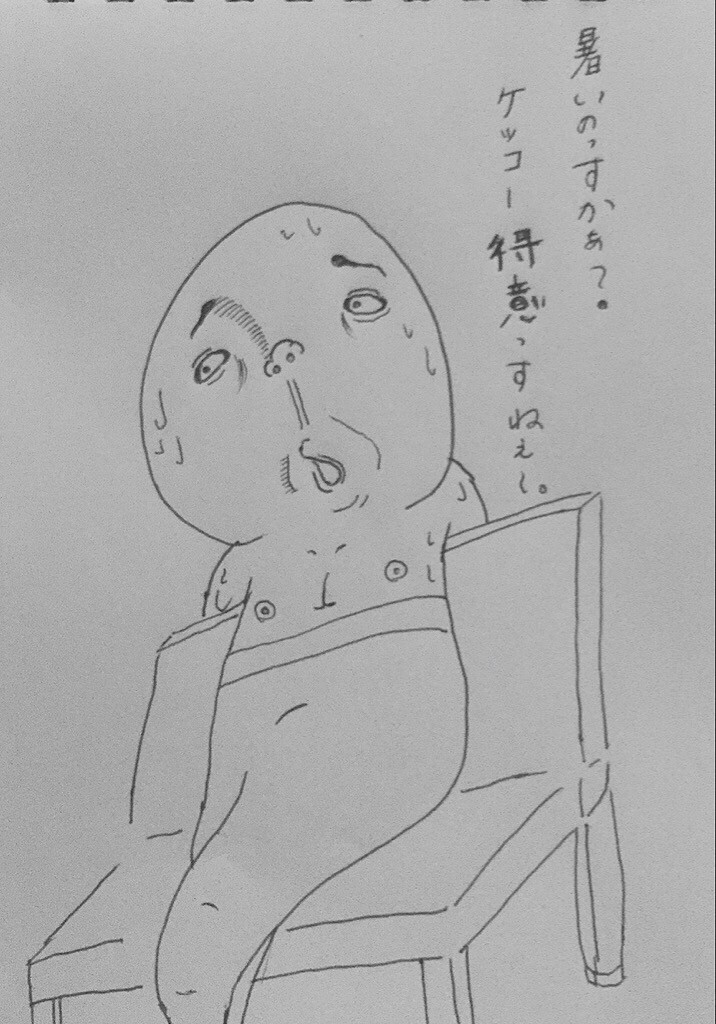 暑いのっすかぁ？。
ケッコー得意っすねぇ〜。